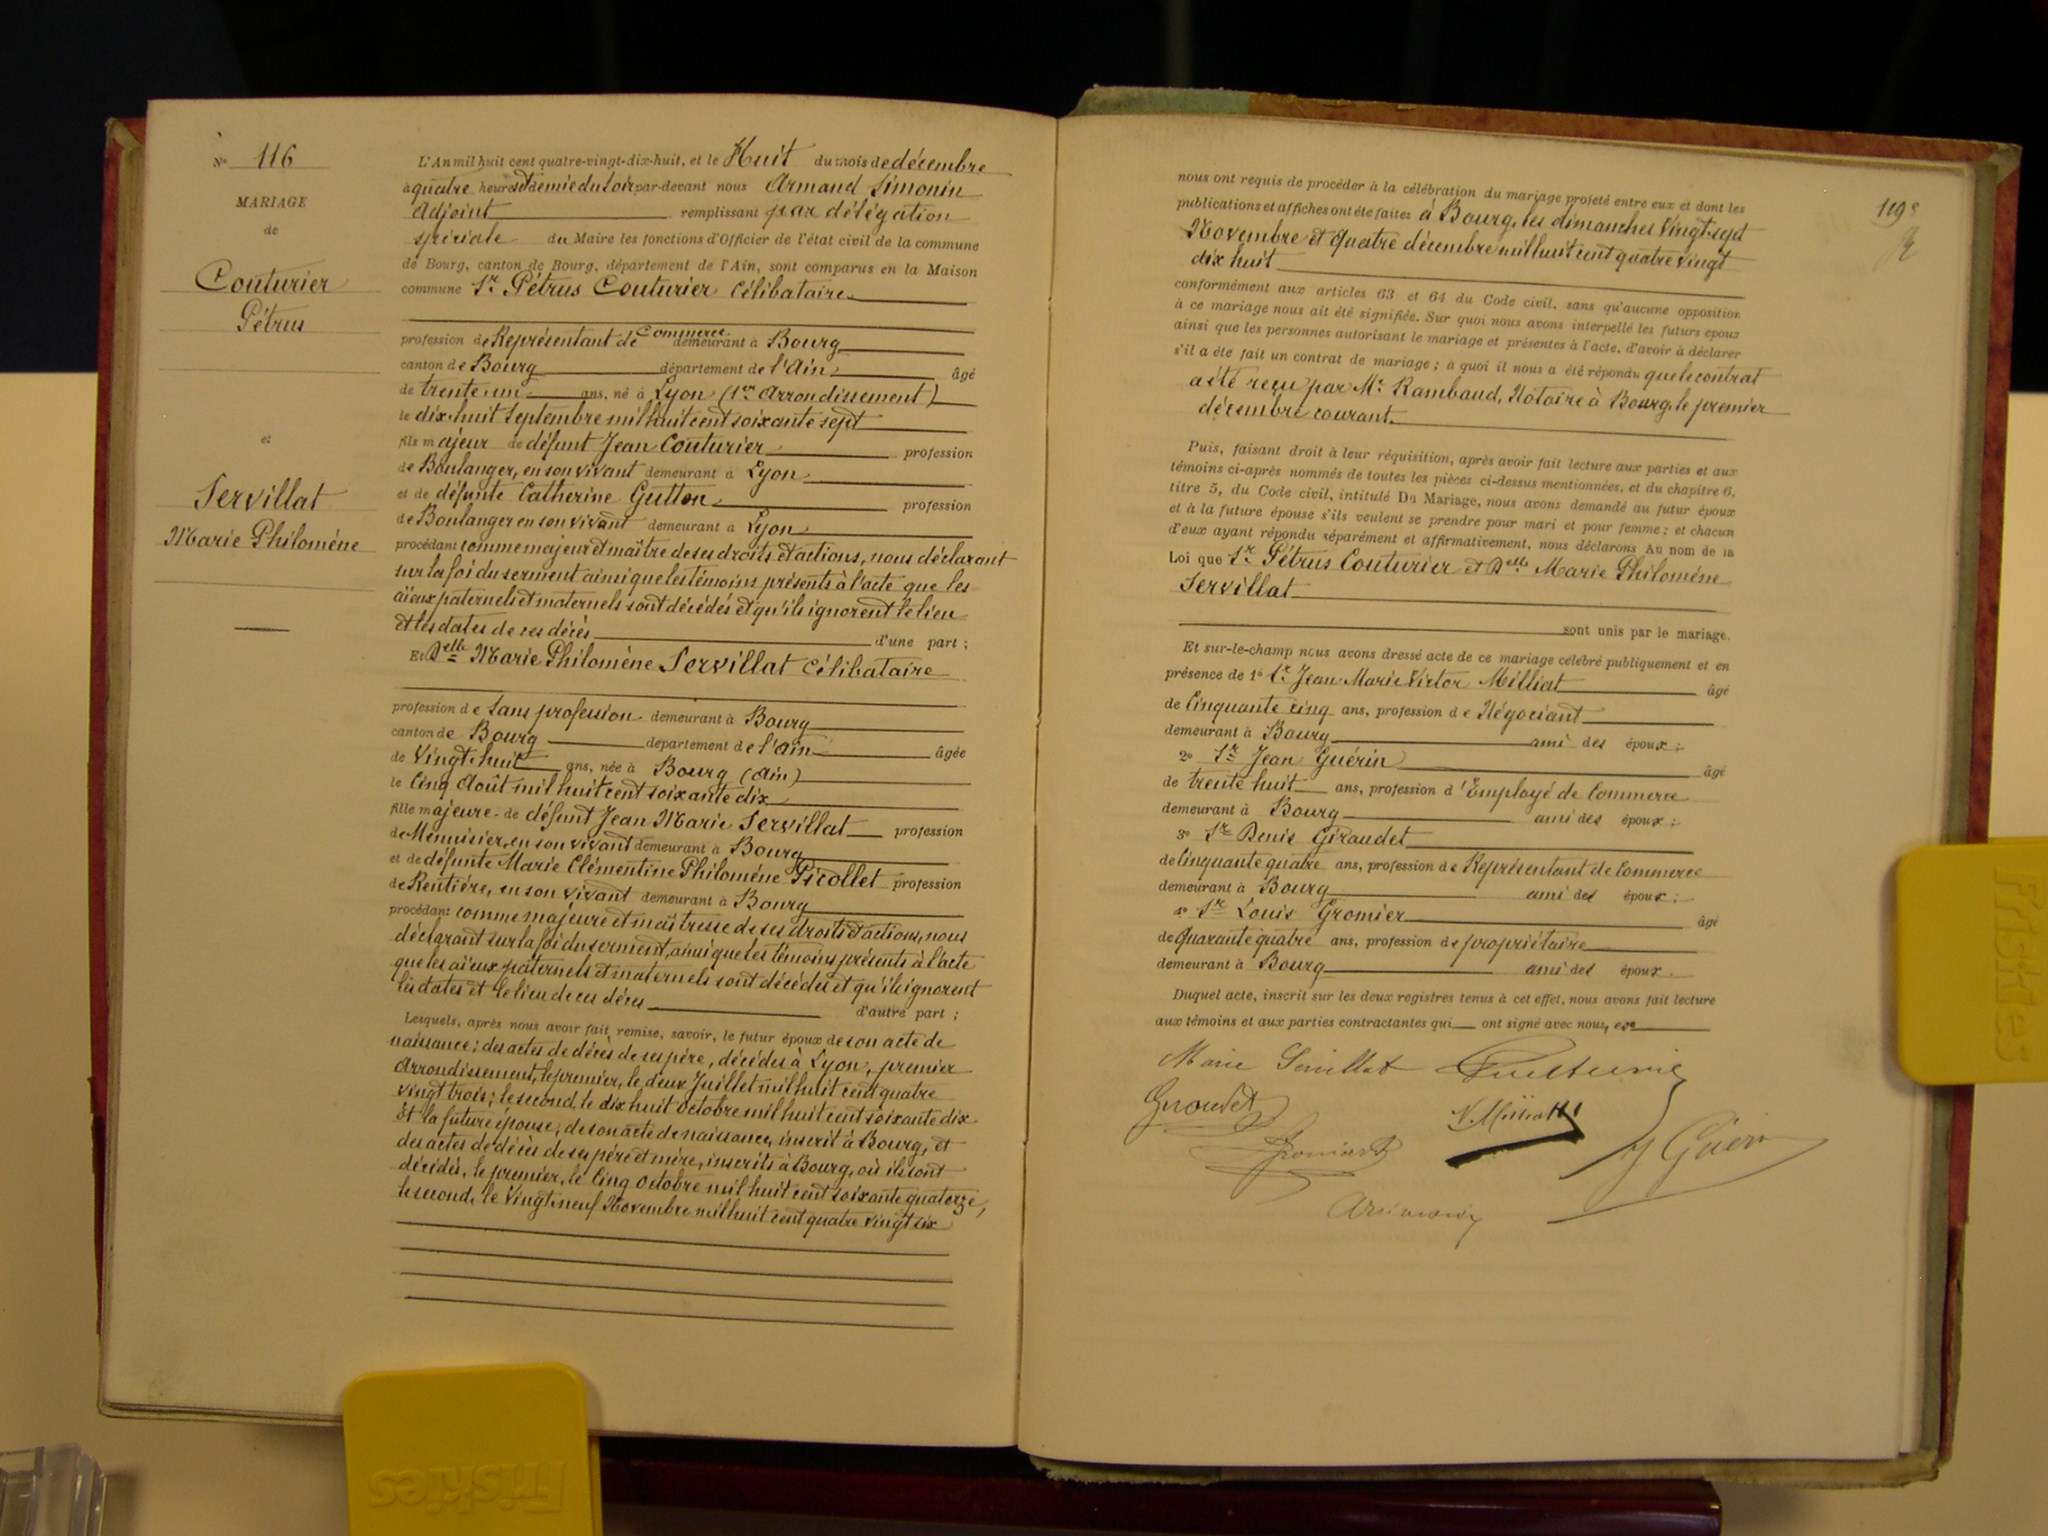 N° 116
MARIAGE
de
Couturier
Pétrus
et
Servillat
Marie Philomène
L'An mil huit cent quatre-vingt-dix-huit, et le Huit du mois de décembre
à quatre heures et demie du soir par-devant nous Armand Simonin
Adjoint remplissant par délégation
spéciale du Maire les fonctions d'Officier de l'état civil de la commune
de Bourg, canton de Bourg, département de l'Ain, sont comparus en la Maison
commune Sr Pétrus Couturier Célibataire
profession de Représentant de Commerce demeurant à Bourg
canton de Bourg département de l'Ain âgé
de trente un ans, né à Lyon (1er Arrondissement)
le dix-huit Septembre mil huit cent soixante sept
fils majeur de défunt Jean Couturier profession
de Boulanger, en son vivant demeurant à Lyon
et de défunte Catherine Gutton profession
de Boulanger en son vivant demeurant à Lyon
procédant comme majeur et maître de ses droits et actions, nous déclarant
sur la foi du serment ainsi que les témoins présents à l'acte que les
aïeux paternels et maternels sont décédés et qu'ils ignorent le lieu
et les dates de ces décès d'une part ;
Et Delle Marie Philomène Servillat Célibataire
profession de Sans profession demeurant à Bourg
canton de Bourg département de l'Ain âgée
de Vingt-huit ans, née à Bourg (Ain)
le Cinq Août mil huit cent soixante dix
fille majeure de défunt Jean Marie Servillat profession
de Menuisier, en son vivant demeurant à Bourg
et de défunte Marie Clémentine Philomène Picollet profession
de Rentière, en son vivant demeurant à Bourg
procédant comme majeure et maîtresse de ses droits et actions, nous
déclarant sur la foi du serment, ainsi que les témoins présents à l'acte
que les aïeux paternels et maternels sont décédés et qu'ils ignorent
les dates et le lieu de ces décès d'autre part ;
Lesquels, après nous avoir fait remise, savoir, le futur époux de son acte de
naissance ; des actes de décès de ses père, décédés à Lyon, premier
Arrondissement, le premier, le deux Juillet mil huit cent quatre
vingt trois ; le second, le dix huit Octobre mil huit cent soixante dix
Et la future épouse, de son acte de naissance, inscrit à Bourg, et
des actes de décès de ses père et mère, inscrits à Bourg, où ils sont
décédés, le premier, le Cinq Octobre mil huit cent soixante quatorze,
le second, le Vingt-neuf Novembre mil huit cent quatre vingt six
119e
nous ont requis de procéder à la célébration du mariage projeté entre eux et dont les
publications et affiches ont été faites à Bourg, les dimanches Vingt-sept
Novembre et Quatre décembre mil huit cent quatre vingt
dix huit
conformément aux articles 63 et 64 du Code civil, sans qu'aucune opposition
à ce mariage nous ait été signifiée. Sur quoi nous avons interpellé les futurs époux
ainsi que les personnes autorisant le mariage et présentes à l'acte, d'avoir à déclarer
s'il a été fait un contrat de mariage ; à quoi il nous a été répondu que le contrat
a été reçu par Me Rambaud, Notaire à Bourg, le premier
décembre courant.
Puis, faisant droit à leur réquisition, après avoir fait lecture aux parties et aux
témoins ci-après nommés de toutes les pièces ci-dessus mentionnées, et du chapitre 6,
titre 5, du Code civil, intitulé Du Mariage, nous avons demandé au futur époux
et à la future épouse s'ils veulent se prendre pour mari et pour femme ; et chacun
d'eux ayant répondu séparément et affirmativement, nous déclarons Au nom de la
Loi que Sr Pétrus Couturier et Delle Marie Philomène
Servillat
sont unis par le mariage.
Et sur-le-champ nous avons dressé acte de ce mariage célébré publiquement et en
présence de 1° Sr Jean Marie Victor Milliat âgé
de Cinquante cinq ans, profession de Négociant
demeurant à Bourg ami des époux ;
2° Sr Jean Guérin âgé
de trente huit ans, profession d'Employé de Commerce
demeurant à Bourg ami des époux ;
3° Sr Denis Giraudet
de Cinquante quatre ans, profession de Représentant de Commerce
demeurant à Bourg ami des époux ;
4° Sr Louis Gromier âgé
de Quarante quatre ans, profession de propriétaire
demeurant à Bourg ami des époux.
Duquel acte, inscrit sur les deux registres tenus à cet effet, nous avons fait lecture
aux témoins et aux parties contractantes qui ont signé avec nous,
Marie Servillat Couturier
Giroudet V. Milliat
J Guérin
Friskies
Friskies